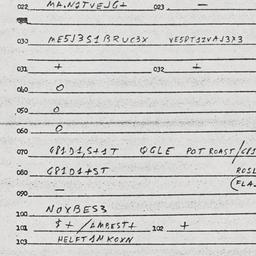 022 MA.NITVEJG+ 023 —
030 ME5J3S1BRUC3X VE5DT12VAJ3X3
031 + 032 +
040 O
050 O
060 O
070 GP1D1,S+1T QGLE POT ROAST/GP1
080 GP1D1+ST ROSL
090 — (FLA
100 NOXBES3
101 $+/AMBEST+ 102 +
103 HELFT1NKOXN